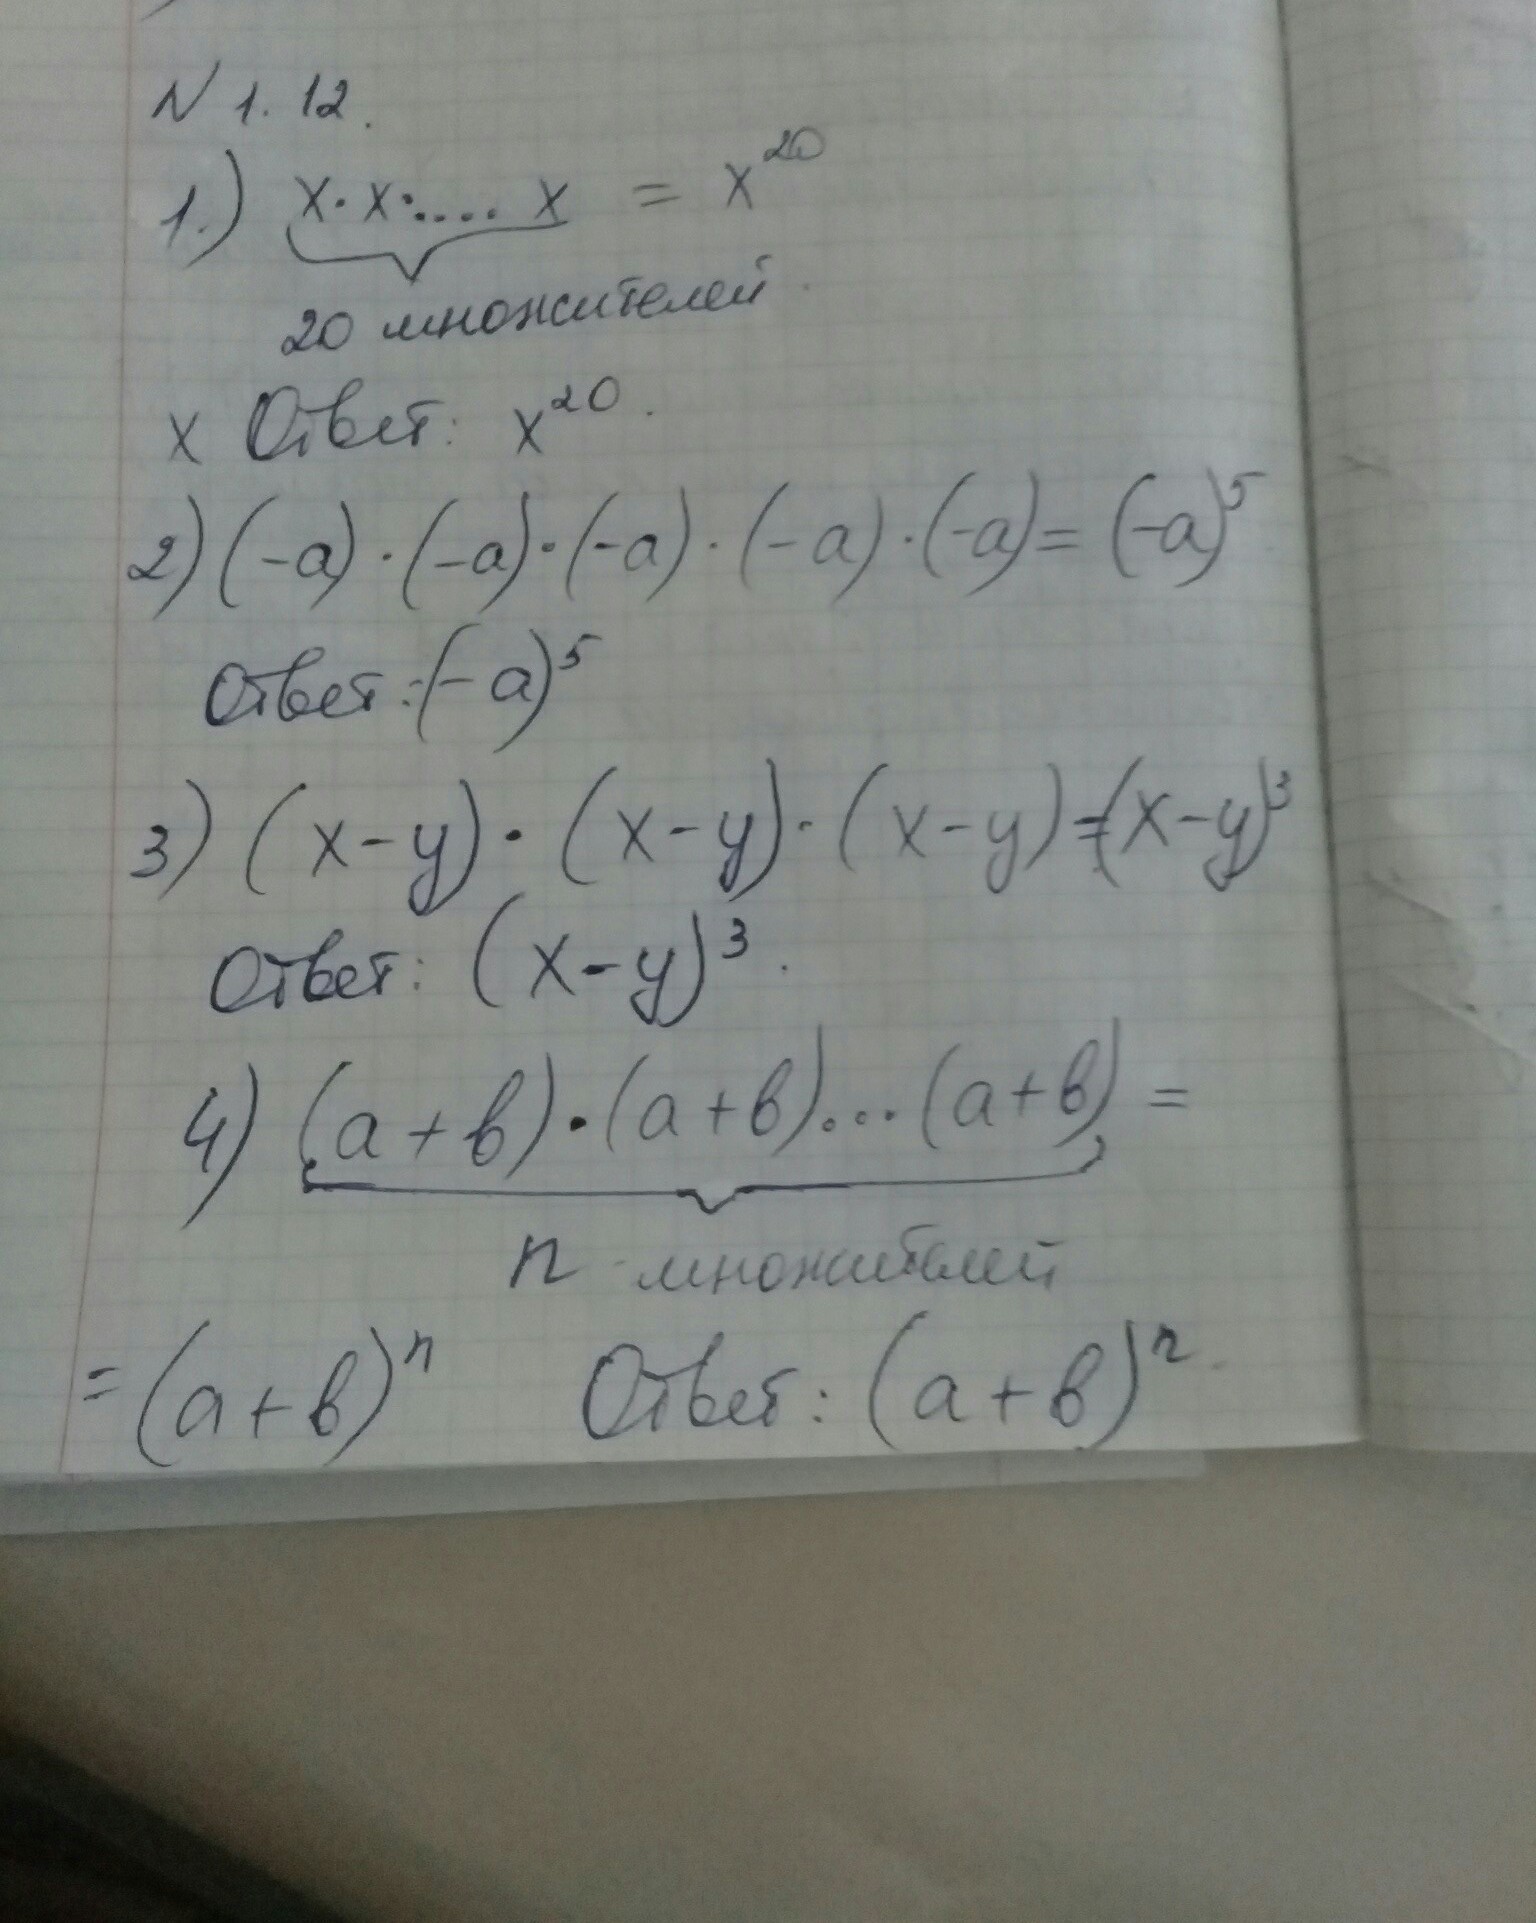 N 1.12.
1.) x·x·.... x = x²⁰
20 множителей
x Ответ: x²⁰.
2) (-a)·(-a)·(-a)·(-a)·(-a)=(-a)⁵
Ответ:(-a)⁵
3) (x-y)·(x-y)·(x-y)=(x-y)³
Ответ: (x-y)³.
4) (a+в)·(a+в)...(a+в) =
n множителей
=(a+в)ⁿ Ответ: (a+в)ⁿ.